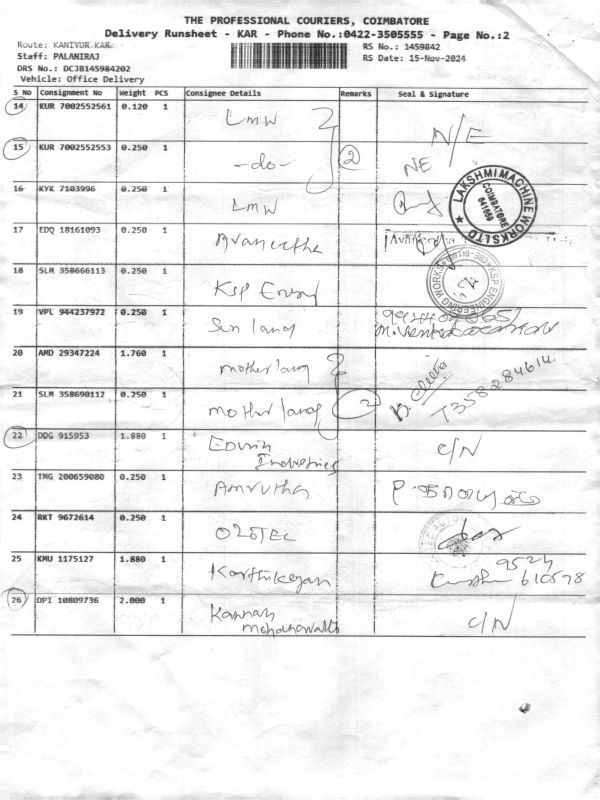 THE PROFESSIONAL COURIERS, COIMBATORE
Delivery Runsheet - KAR - Phone No.:0422-3505555 - Page No.:2
Route: KANIYUR KAR
RS No.: 1459842
Staff: PALANIRAJ
RS Date: 15-Nov-2024
DRS No.: DCJB145984202
Vehicle: Office Delivery
S_No Consignment No Weight PCS Consignee Details Remarks Seal & Signature
14 KUR 7002552561 0.120 1 LMW N/E
15 KUR 7002552553 0.250 1 -do- 2 NE
16 KYK 7103996 0.250 1 LMW
LAKSHMI MACHINE WORKS LTD
COIMBATORE
641659
17 EDQ 18161093 0.250 1
18 SLM 358666113 0.250 1 KSP
KSP ENGINEERING WORKS
19 VPL 944237972 0.250 1
20 AMD 29347224 1.760 1 mother lang
21 SLM 358690112 0.250 1 mother lang 2
7358284614
22 DDG 915953 1.880 1 Edwin C/N
Industries
23 TMG 200659080 0.250 1 Amrutha
24 RKT 9672614 0.250 1
25 KMU 1175127 1.880 1 Karthikeyan 9524
610578
26 DPI 10809736 2.000 1 Kannan C/N